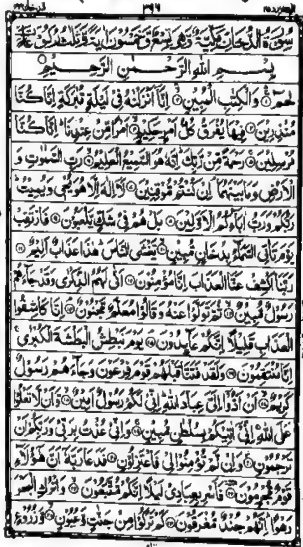 سُورَةُ الدُّخَانِ مَكِّيَّةٌ وَهِيَ
بِسْمِ اللهِ الرَّحْمٰنِ الرَّحِيْمِ
حٰمٓ وَالْكِتٰبِ الْمُبِيْنِ اِنَّآ اَنْزَلْنٰهُ فِيْ لَيْلَةٍ مُّبٰرَكَةٍ اِنَّا كُنَّا
مُنْذِرِيْنَ فِيْهَا يُفْرَقُ كُلُّ اَمْرٍ حَكِيْمٍ اَمْرًا مِّنْ عِنْدِنَا اِنَّا كُنَّا
مُرْسِلِيْنَ رَحْمَةً مِّنْ رَّبِّكَ اِنَّهٗ هُوَ السَّمِيْعُ الْعَلِيْمُ رَبِّ السَّمٰوٰتِ وَ
الْاَرْضِ وَمَا بَيْنَهُمَا اِنْ كُنْتُمْ مُّوْقِنِيْنَ لَآ اِلٰهَ اِلَّا هُوَ يُحْيٖ وَيُمِيْتُ
رَبُّكُمْ وَرَبُّ اٰبَآئِكُمُ الْاَوَّلِيْنَ بَلْ هُمْ فِيْ شَكٍّ يَّلْعَبُوْنَ فَارْتَقِبْ
يَوْمَ تَاْتِي السَّمَآءُ بِدُخَانٍ مُّبِيْنٍ يَّغْشَى النَّاسَ هٰذَا عَذَابٌ اَلِيْمٌ
رَبَّنَا اكْشِفْ عَنَّا الْعَذَابَ اِنَّا مُؤْمِنُوْنَ اَنّٰى لَهُمُ الذِّكْرٰى وَقَدْ جَآءَهُمْ
رَسُوْلٌ مُّبِيْنٌ ثُمَّ تَوَلَّوْا عَنْهُ وَقَالُوْا مُعَلَّمٌ مَّجْنُوْنٌ اِنَّا كَاشِفُوا
الْعَذَابِ قَلِيْلًا اِنَّكُمْ عَآئِدُوْنَ يَوْمَ نَبْطِشُ الْبَطْشَةَ الْكُبْرٰى
اِنَّا مُنْتَقِمُوْنَ وَلَقَدْ فَتَنَّا قَبْلَهُمْ قَوْمَ فِرْعَوْنَ وَجَآءَهُمْ رَسُوْلٌ
كَرِيْمٌ اَنْ اَدُّوْٓا اِلَيَّ عِبَادَ اللهِ اِنِّيْ لَكُمْ رَسُوْلٌ اَمِيْنٌ وَّاَنْ لَّا تَعْلُوْا
عَلَى اللهِ اِنِّيْٓ اٰتِيْكُمْ بِسُلْطٰنٍ مُّبِيْنٍ وَاِنِّيْ عُذْتُ بِرَبِّيْ وَرَبِّكُمْ اَنْ
تَرْجُمُوْنِ وَاِنْ لَّمْ تُؤْمِنُوْا لِيْ فَاعْتَزِلُوْنِ فَدَعَا رَبَّهٗٓ اَنَّ هٰٓؤُلَآءِ
قَوْمٌ مُّجْرِمُوْنَ فَاَسْرِ بِعِبَادِيْ لَيْلًا اِنَّكُمْ مُّتَّبَعُوْنَ وَاتْرُكِ الْبَحْرَ
رَهْوًا اِنَّهُمْ جُنْدٌ مُّغْرَقُوْنَ كَمْ تَرَكُوْا مِنْ جَنّٰتٍ وَّعُيُوْنٍ وَّزُرُوْعٍ